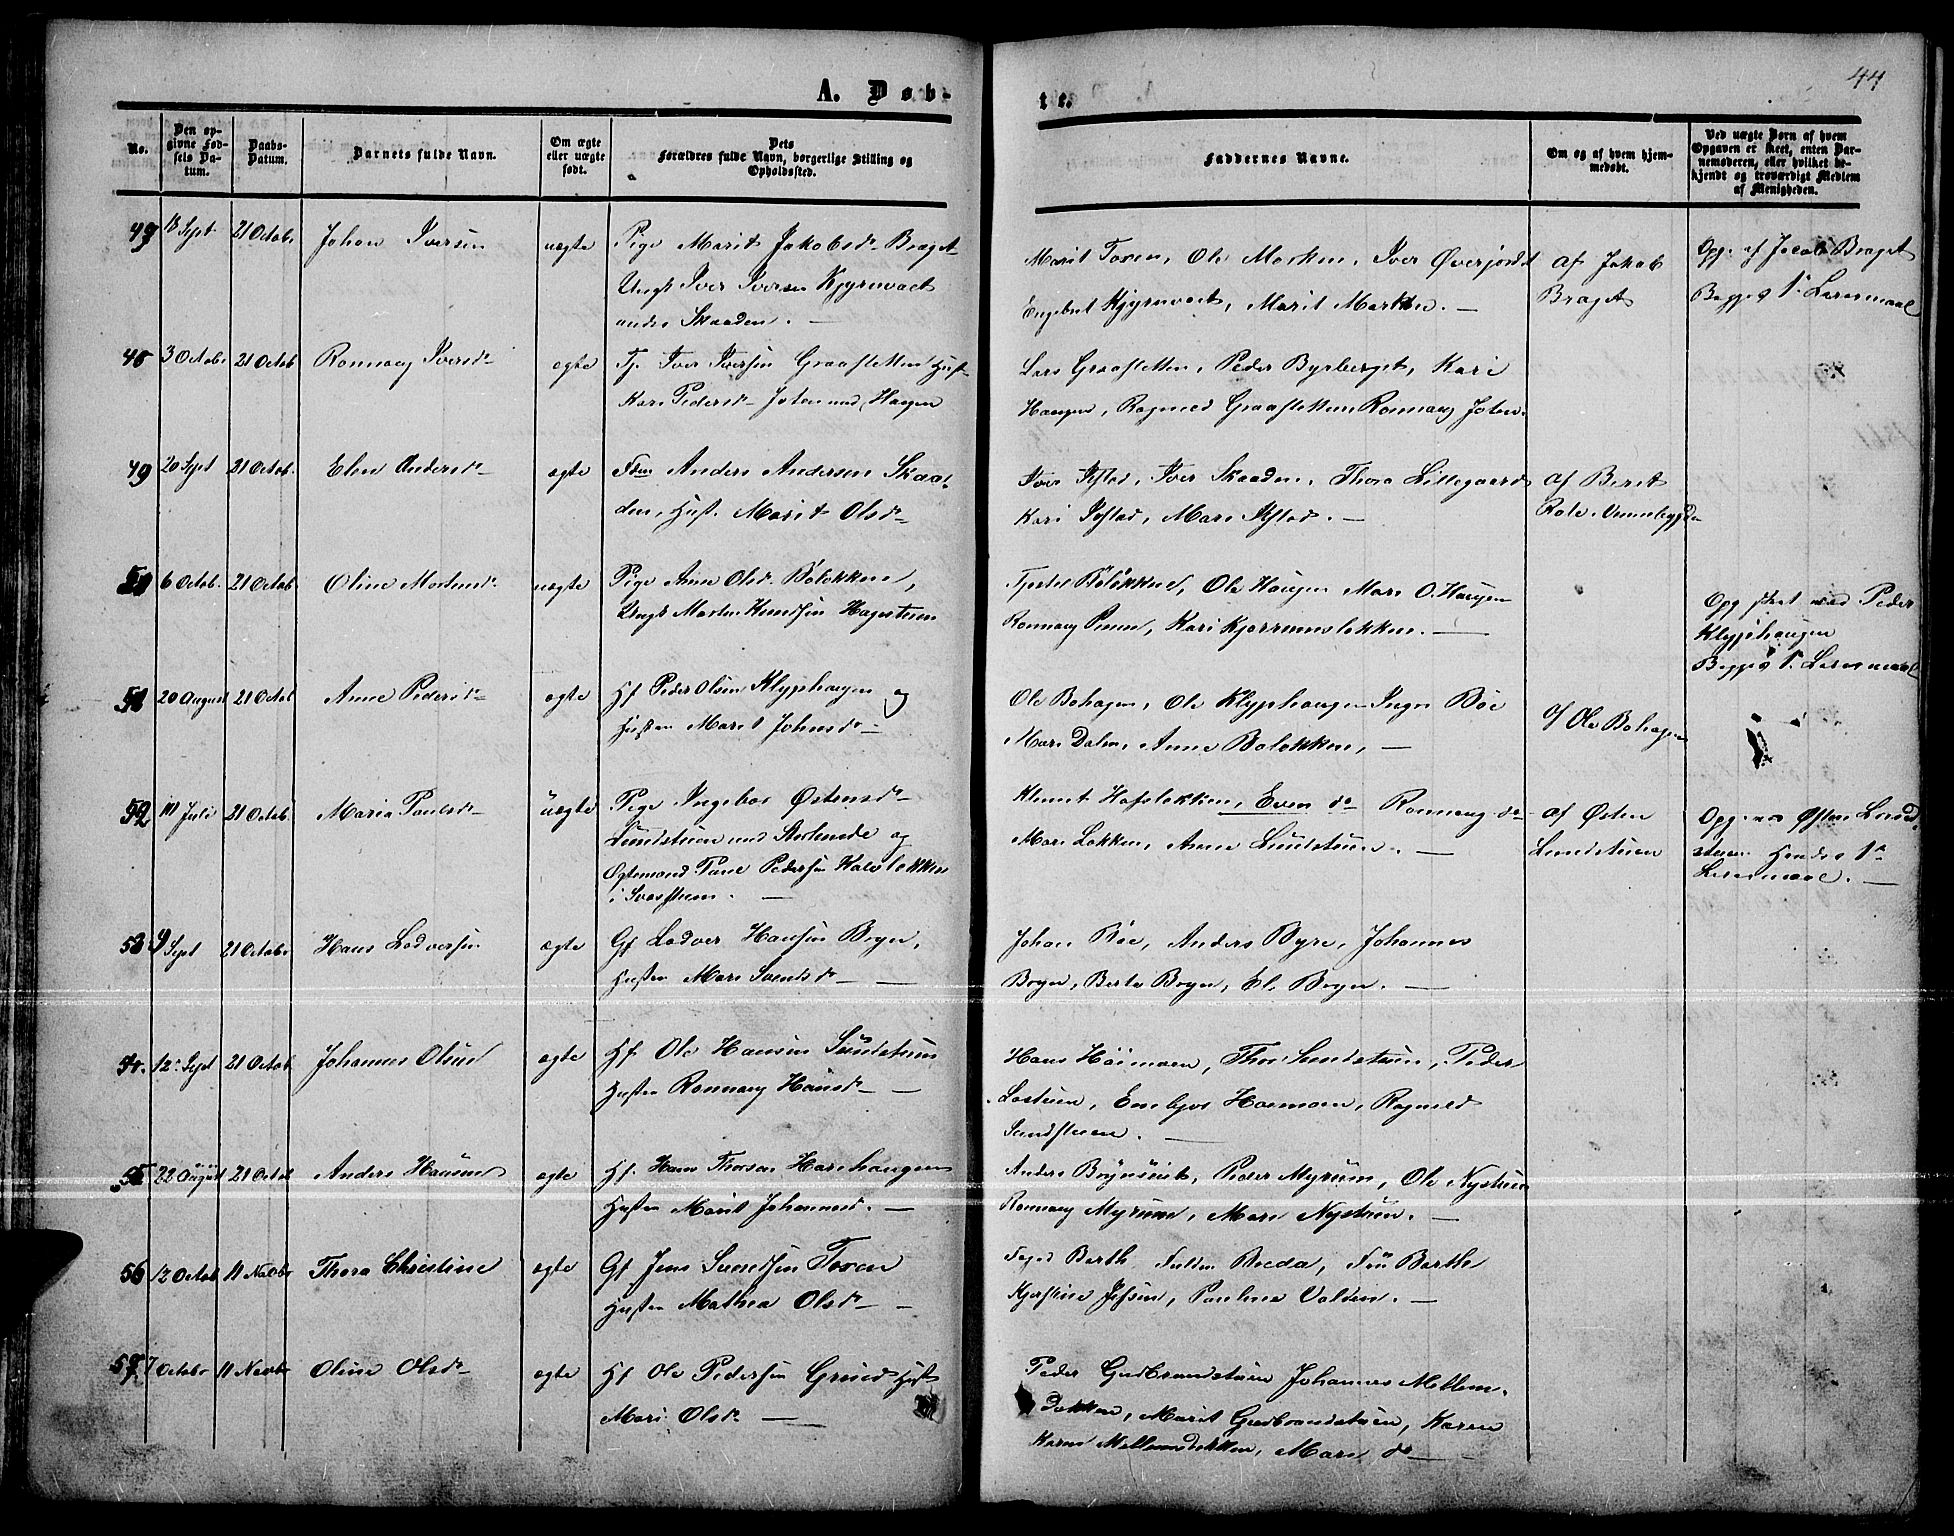 44
A. Døb-
te.
No.
Den op-
givne Fød-
sels Da-
tum.
Daabs-
Datum.
Barnets fulde Navn.
Om ægte
eller uægte
født.
Dets
Forældres fulde Navn, borgerlige Stilling og
Opholdssted.
Faddernes Navne.
Om og af hvem hjem-
medøbt.
Ved uægte Børn af hvem
Opgaven er skeet, enten Bar-
nemoderen, eller hvilket be-
kjendt og troværdigt Medlem
af Menigheden.
18 Sept 21 Octobr Johan Iversen uægte Pige Marit Jakobsdr Braget
Ungk Iver Iversen Kjyrnvaet
andre Skaaden. —
Marit Toxen, Ole Morken, Iver Øverjordet
Engebret Kjyrnvaet, Marit Morken. —
af Jakob
Braget
Opg. af Jacob Braget
Begges 1ste Leiermaal
3 Octobr 21 Octob Ronnaug Iversdr ægte Tj. Iver Iversen Graasletten Hust
Kari Pedersdr Joten ned Haugen
Lars Graasletten, Peder Byrberget, Kari
Haugen, Ragnild Graasletten Ronnaug Joten.
49 20 Sept 21 Octob. Eline Andersdr ægte Fdm Anders Andersen Skaa-
den, Hust. Marit Olsdr
Iver Ifstad, Iver Skaaden, Thora Lillegaard
Kari Ifstad, Mari Ifstad. —
af Berit
Role
6 Octob. 21 Octob Oline Mortensdr uægte Pige Anne Olsd. Bölökken,
Ungk Morten Knudsen Hagesteen
Bölökken, Ole Haugen Mari O. Haugen
Ronnaug Kari Kjorrumslokken. —
Opg skeet ved Peder
Klyphaugen
Begges 1ste Leiermaal
51 20 August 21 Octob Anne Pedersdr ægte Hf Peder Olsen Klyphaugen og
Husten Marit Johnsdr —
Ole Bohagen, Ole Klyphaugen Inger Böe
Mari Dalen, Anne Bolokken, —
af Ole Bohagen
52 Juli 21 Octob. Maria Paulsdr uægte Pige Ingebor Østensdr
Lundstuen og
Ogtemand Pedersen
i
Klemet Hofslokken, Even do Ronnaug do
Mari Lokken, Anne Lundstuen. —
af Østen
Lundstuen
Opg. Østen Lund-
stuen Hendes 1ste
Leiermaal. —
53 9 Sept 21 Octobr Hans Lodversen ægte Gf Lodver Hansen Bryn,
Husten Mari Svendsdr —
Johan Böe, Anders Byre, Johannes
Bryn, Berte Bryn, El. Bryn. —
54. 12te Sept 21 Octob Johannes Olsen ægte Hf. Ole Hansen Sundstuen
Husten Ronnaug Hansdr —
Hans Höimoen, Thor Sundstuen, Peder
Lostuen, Embjor Hoemoen, Ragnild
Sundstuen. —
55 22 August 21 Octob Anders Hansen ægte Hf. Hans Thorsen Harehaugen
Husten Marit Johannesd. —
Anders Peder Myrum, Ole Nystuen
Ronnaug Myrum, Mari Nystuen. —
56 12 Octob 11 Novbr Thora Christine ægte Gf Jens Toxen
Husten Mathea Olsdr —
Foged Barth Barth
Kjerstine Jefsen, Pauline —
57 7 Octobr 11 Novbr Oline Olsdr ægte Hf Ole Pedersen Grind Hust
Mari Olsdr —
Peder Gudbrandstuen Johannes Mellem-
dokken, Marit Gudbrandstuen, Karen
Karen Mellemdokken, Mari do —